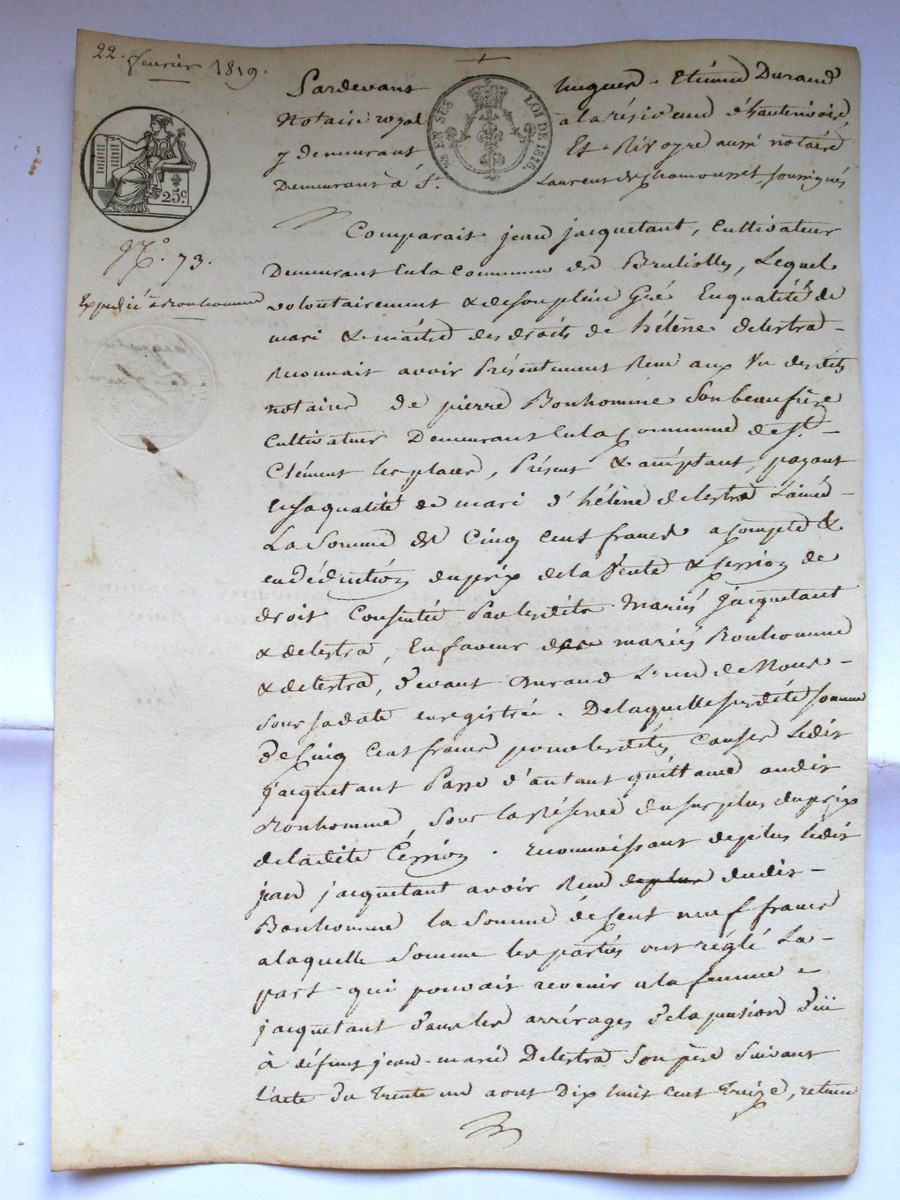 22. février 1819.
Pardevant Hugues - Etienne Durand
Notaire royal à la résidence d'hauterivoire,
y demeurant Et Rivoyre aussi notaire
Demeurant à St. Laurent de chamousset soussignés
EN SUS
LOI DE 1816
25c.
No. 73.
Expédié à Bonhomme
Comparait jean jacquetant, Cultivateur
Demeurant en la Commune de Brulioles, Lequel
volontairement & de son plein Gré En qualité de
mari & maître des droits de hélène delestra -
Reconnait avoir Présentement Reçu aux Vu desdits
notaires de pierre Bonhomme Son beaufrère
Cultivateur Demeurant En la Commune de St. -
Clément les places, Présent & acceptant, payant
en sa qualité de mari d'hélène delestra L'ainée -
La Somme de Cinq Cent francs a compte &
en déduction du prix de la Vente & cession de
droit Consentie Par lesdits Mariés jacquetant
& delestra, En faveur des mariés Bonhomme
& delestra, devant Durand L'un de Nous -
Sous sa date enregistrée. De laquelle susdite somme
de Cinq Cent francs pour lesdites Causes Ledit
jacquetant Passe d'autant quittance audit
Bonhomme, Sous la Réserve du surplus du prix
de ladite Cession. reconnaissant de plus ledit
jean jacquetant avoir Reçu de plus dudit -
Bonhomme la Somme de Cent neuf francs
a laquelle Somme les parties ont réglé La -
part qui pouvait revenir a la femme
jacquetant dans les arrérages de la pension due
à défunt jean-marie Delestra Son père Suivant
L'acte du trente un aout Dix huit cent treize, retenu